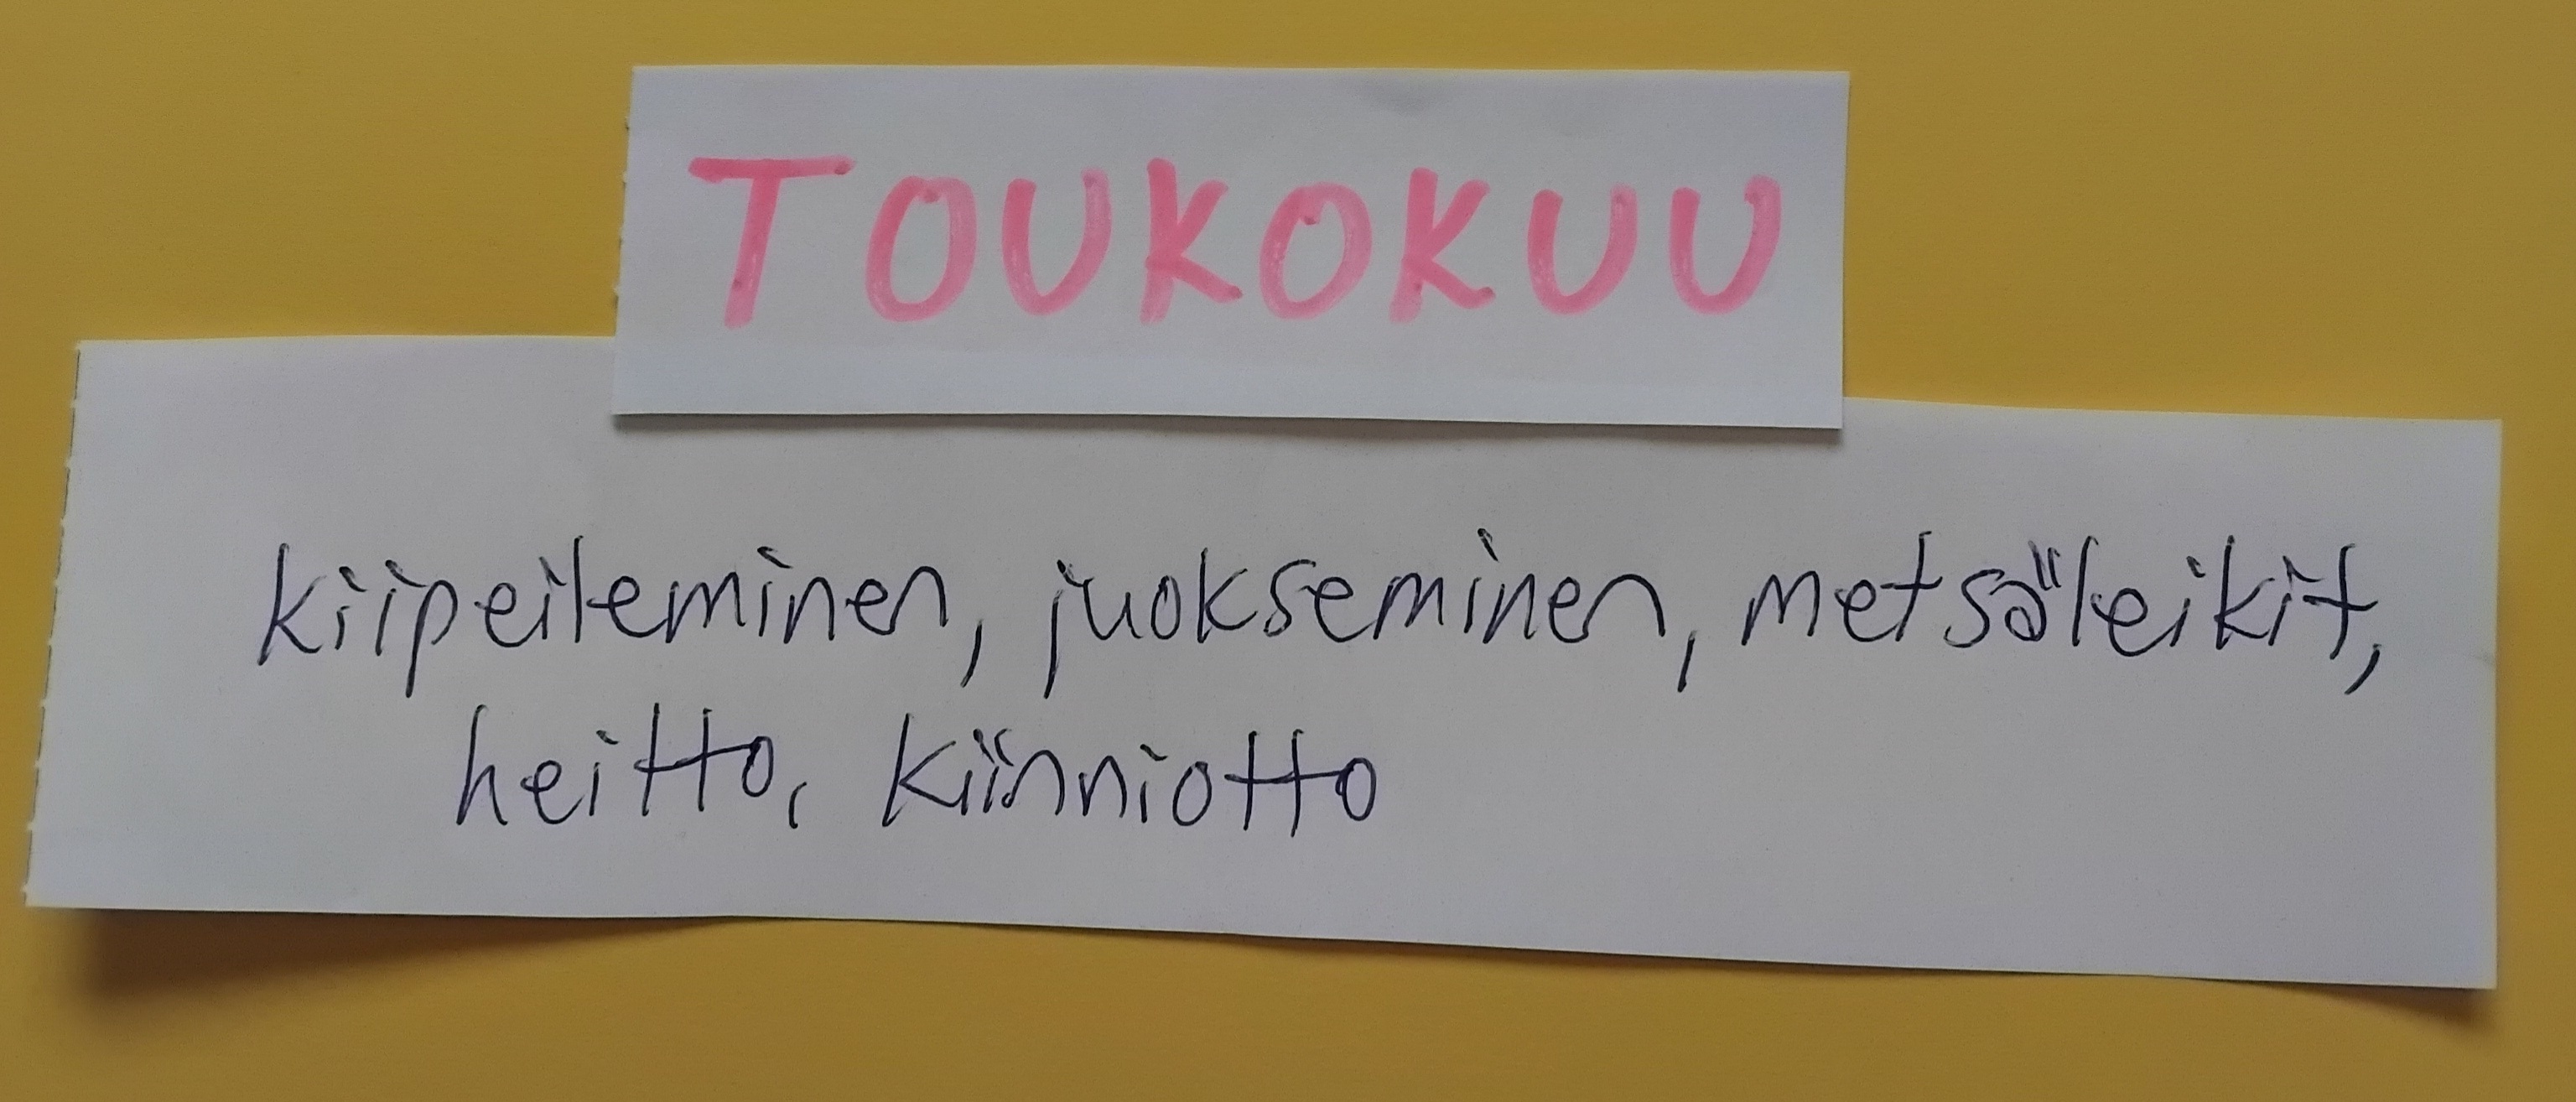 TOUKOKUU
kiipeileminen, juokseminen, metsäleikit,
heitto, kiinniotto